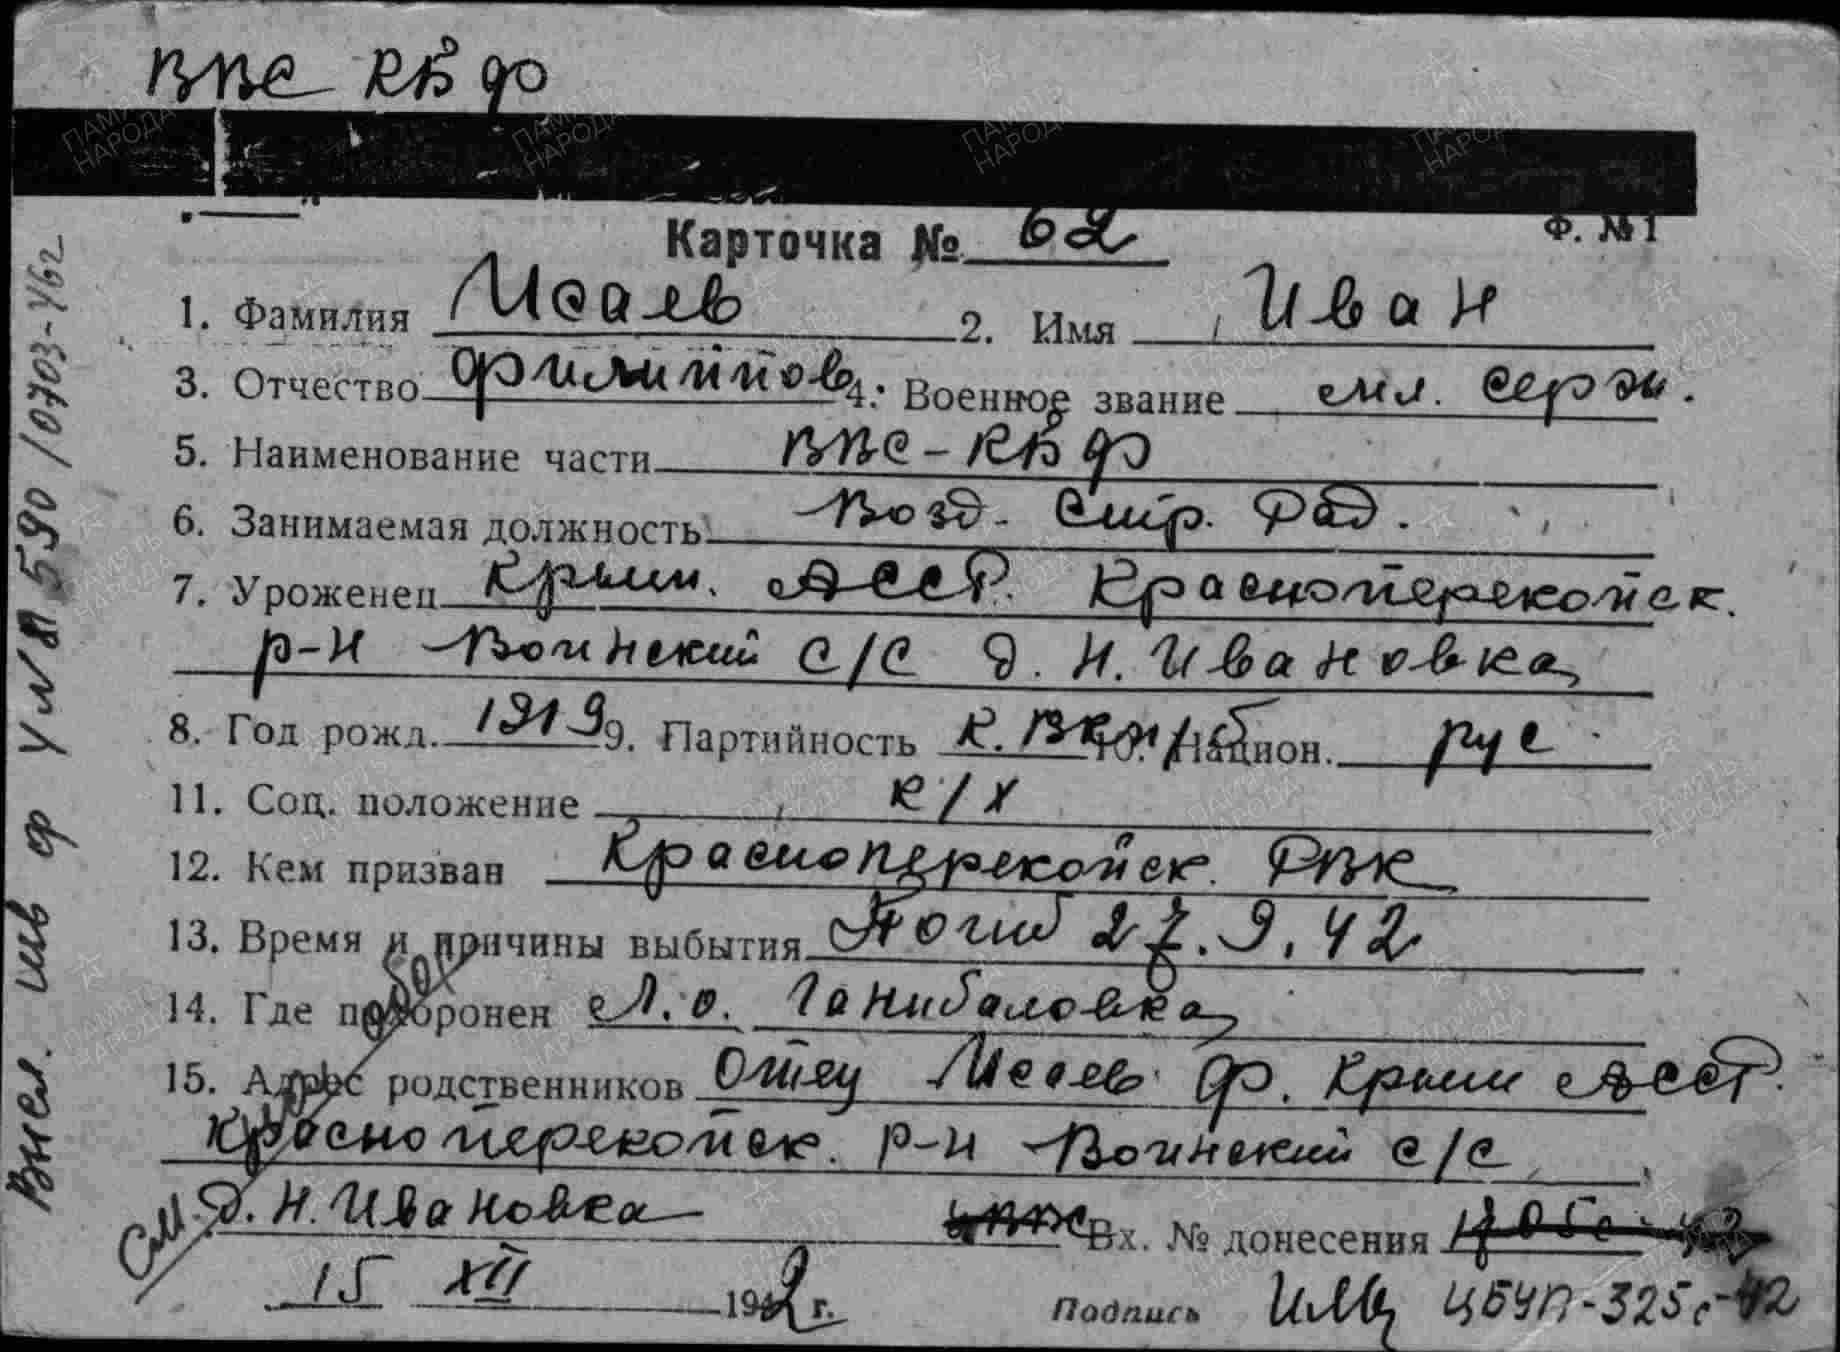 ВВС КБФ
Карточка № 62
Ф. №1
1. Фамилия Исаев 2. Имя Иван
3. Отчество Филиппов. 4. Военное звание мл. серж.
5. Наименование части ВВС-КБФ
6. Занимаемая должность Возд. Стр. Рад.
7. Уроженец Крым. АССР. Красноперекопск.
р-н Воинский с/с д. Н. Ивановка
8. Год рожд. 1919 9. Партийность к. ВКП/б 10. Национ. рус
11. Соц. положение к/х
12. Кем призван Красноперекопск. РВК
13. Время и причины выбытия Погиб 27.9.42
14. Где похоронен Л.о. Ганибаловка
15. Адрес родственников Отец Исаев Ф. Крым АССР.
Красноперекопск. р-н Воинский с/с
д. Н. Ивановка Вх. № донесения
15 XII 1942 г. Подпись ЦБУП-325с-42
См. оборот
590/0703-46г
ПАМЯТЬ НАРОДА